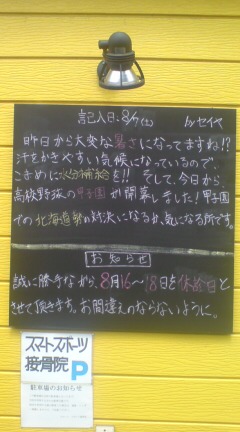 記入日:8/7(土) byセイヤ
昨日から大変な暑さになってますね!?
汗をかきやすい気候になっているので、
こまめに水分補給を!! そして、今日から、
高校野球の甲子園が開幕しました!甲子園
での北海道勢の対決になるか、気になる所です。
お知らせ
誠に勝手ながら、8月16~18日を休診日と
させて頂きます。お間違えのならないように。
スマートスポーツ
接骨院 P
駐車場のお知らせ